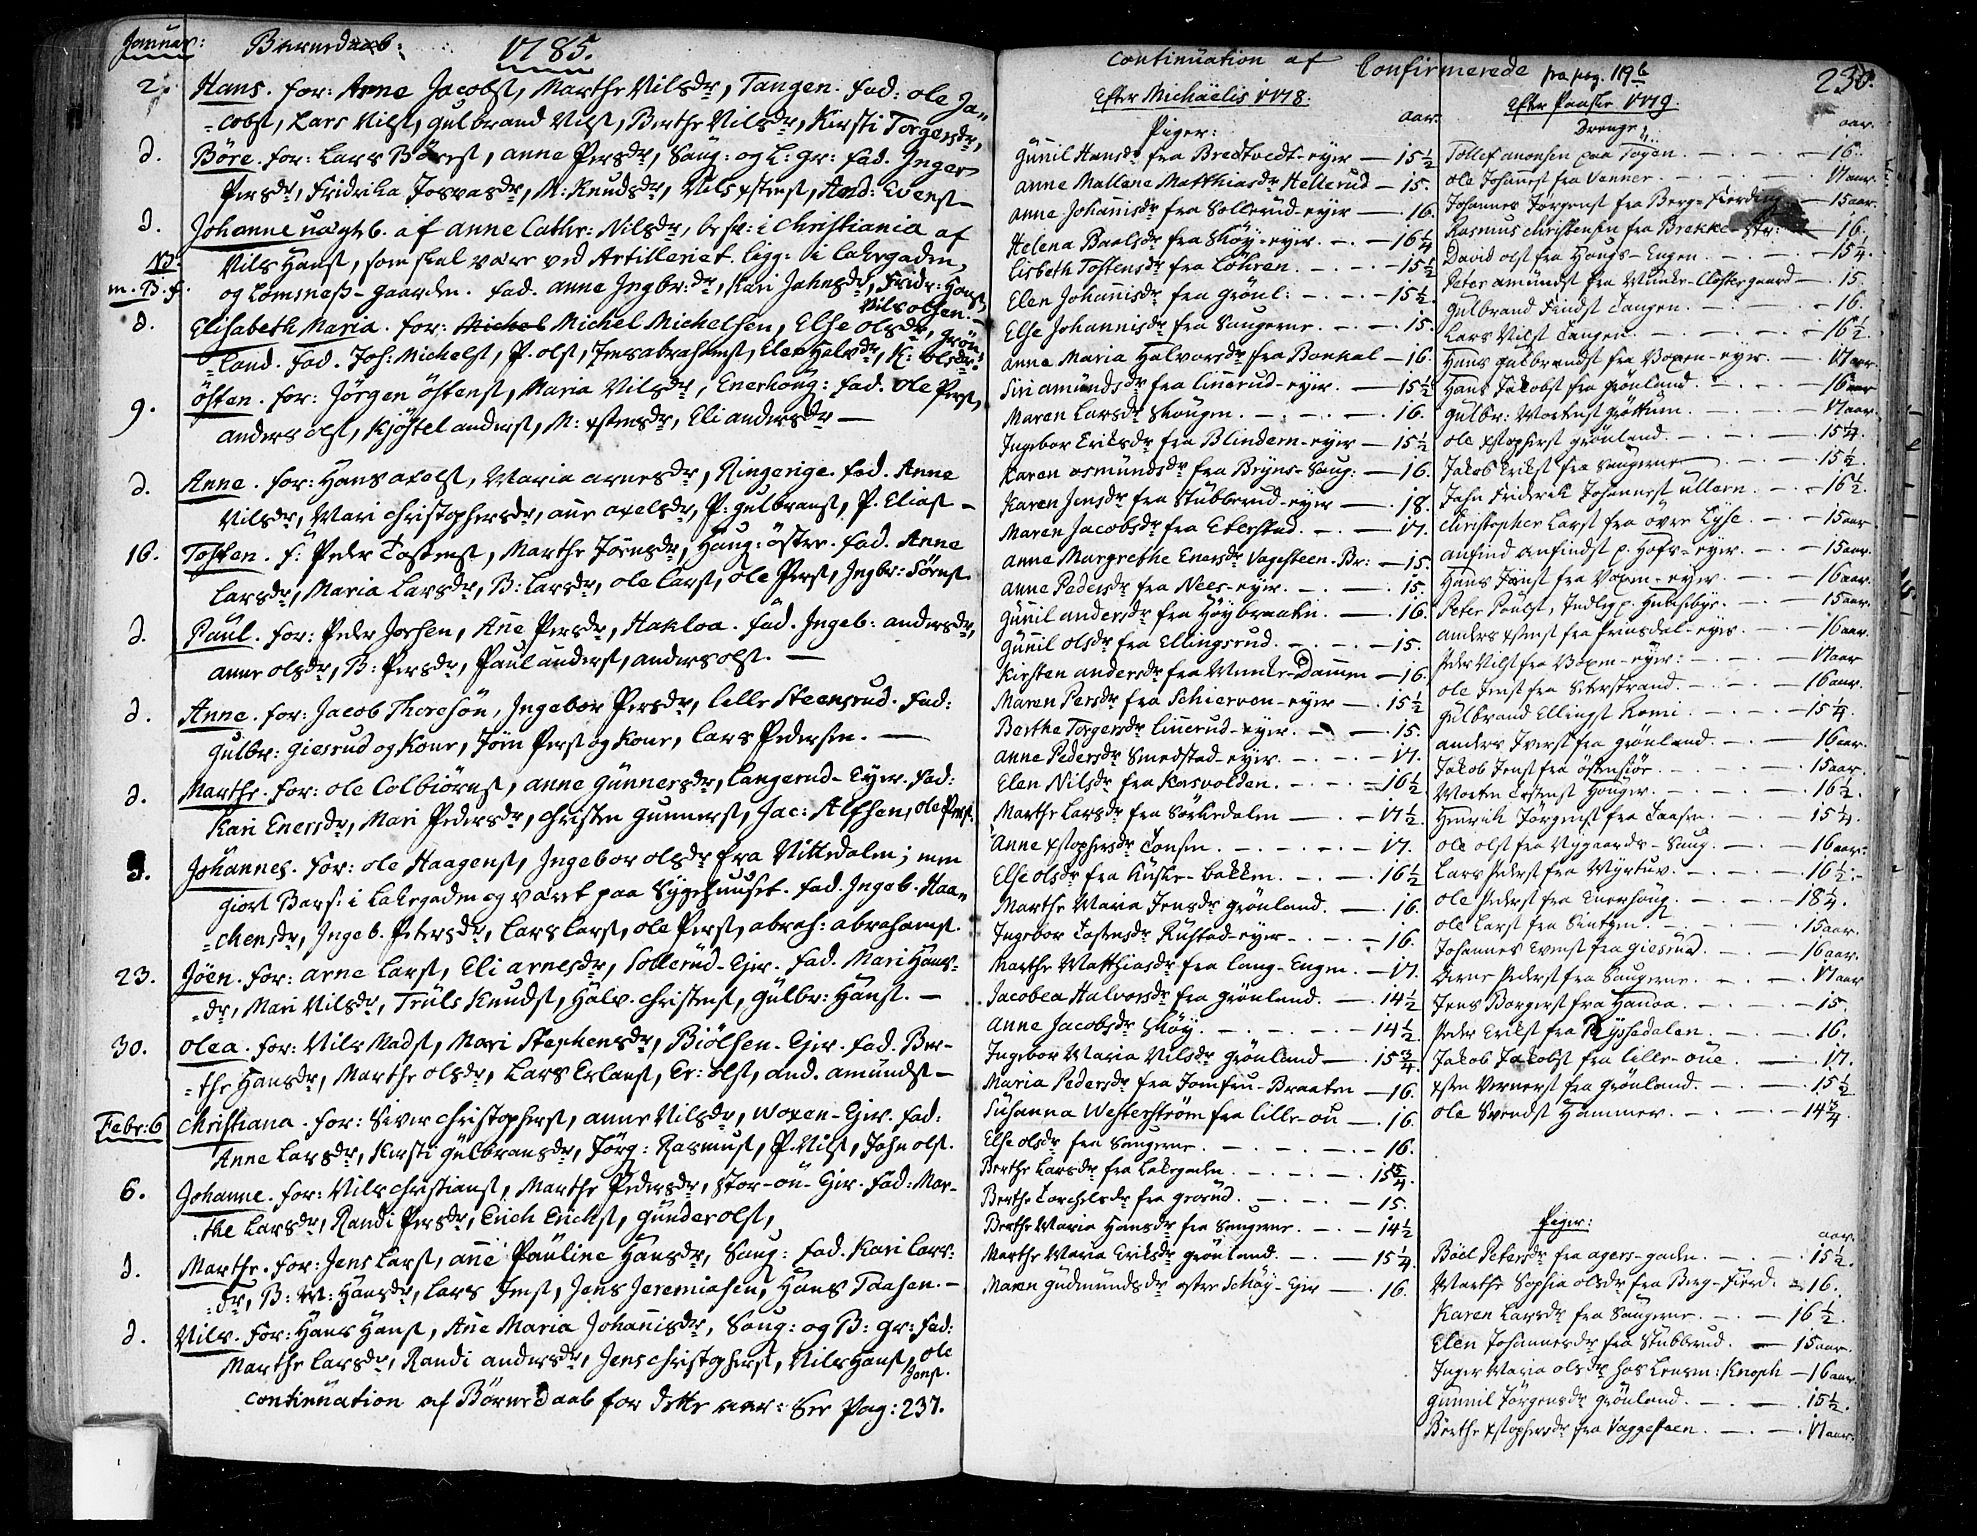 Januar: Barnedaab: 1785.
2. Hans. for: Arne Jacobs:, Marthe Nilsdr, Tangen. fad: ole Ja-
-cobs:, Lars Nils:, Gulbrand Nils:, Berthe Nilsdr, Kirsti Torgersdr,
d. Böre. for: Lars Börs:, anne Persdr, Saug: og L: gr: fad. Inger
Persdr, Fridrika Josvasdr, M: Knudsdr, Nils xstens:, And: Evens: –
d. Johanne uægteb. af anne Cathr: Nilsdr, besv: i Christiania af
12. Nils Hans:, som skal være ved Artilleriet. ligg: i Lakegaden,
m. B. f. og Lomsness-gaarden. fad. anne Ingbr:dr, Kari Johnsdr, Fridr: Hans:
Nils olsen.
d. Elisabeth Maria. for: Michel Michelsen, Else olsdr, Grön-
-land. fad. Joh: Michels:, P. ols:, Jens abrahams:, Elen Halvdr, K: olsdr:
9. östen. for: Jörgen östens:, Maria Nilsdr, Enerhoug: fad. ole Pers:,
anders ols:, Kjöstel anders:, M: xstensdr, Eli andersdr —
d. Anne. for: Hans axels:, Maria arnesdr, Ringerige. fad. Anne
Nilsdr, Mari Christophersdr, añe axelsdr, P: gulbrans:, P. Elias: –
16. Tosten. f: Peder Tostens:, Marthe Jörnsdr, Haug: östre. fad. Anne
Larsdr, Maria Larsdr, B: Larsdr, ole Lars:, ole Pers:, Ingbr: Sörens:
d. Paul. for: Peder Joshen, Añe Persdr, Hakloa. fad. Ingeb: andersdr,
anne olsdr, B: Persdr, Paul anders:, anders ols:. —
d. Anne. for: Jacob Thoresön, Ingebor Persdr, lille Steensrud. fad:
gulbr: giesrud og Kone, Jörn Pers: og Kone, Lars Pedersen. —
d. Marthe. for: ole Colbiörns:, anne Gunnersdr, Langerud-Eyer. fad:
Kari Enersdr, Mari Pedersdr, Christen Gunners:, Jac: Alfsen, ole Pers:.
d. Johannes. for: ole Haagens:, Ingebor olsdr fra Nittedalen; men
giort Bars: i Lakegaden og været paa Sygehuuset. fad. Ingeb. Haa-
-chensdr, Ingeb. Petersdr, Lars Lars:, ole Pers:, abrah: abrahams:.
23. Jöen. for: arne Lars:, Eli arnesdr, Sollerud-Ejer. fad. Mari Hans-
-dr, Mari Nilsdr, Truls Knuds:, Halv. Christens:, Gulbr: Hans:. —
30. olea. for: Nils Mads:, Mari Stephensdr, Biölsen-Ejer. fad. Ber-
-the Hansdr, Marthe olsdr, Lars Erlans:, Er: ols:, and. amunds: –
Febr: 6 Christiana. for: Siver Christophers:, anne Nilsdr, Woxen-Ejer. fad:
Anne Larsdr, Kirsti Gulbransdr, Jörg: Rasmus:, P. Nils:, John ols:.
6. Johanne. for: Nils Christians:, Marthe Pedersdr, Stor-öu-Ejer. fad: Mar-
-the Larsdr, Randi Persdr, Erich Erichs:, Gunder ols:,
d. Marthe. for: Jens Lars:, añe Pauline Hansdr, Saug: fad. Kari Lars-
-dr, B: M: Hansdr, Lars Jens:, Jens Jeremiasen, Hans Taasen. –
d. Nils. for: Hans Hans:, Añe Maria Johañisdr, Saug: og B: gr: fad:
Marthe Larsdr, Randi andersdr, Jens Christophers:, Nils Hans:, ole
Jons:.
continuation af Börnedaab for dette aar: See Pag: 237.
Continuation af Confirmerede fra pag. 119 b 230.
Efter Michäelis 1778.
Piger: aar.
Guñil Hansdr fra Bredtvedt-eyer — 15½
anne Mallene Matthiasdr Hellerud — 15.
anne Johañisdr fra Sollerud-eyer — 16.
Helena Paalsdr fra Skøy-eyer. — 16¼
Lisbeth Tostensdr fra Löhren. — 15½
Elen Johañisdr fra Grönl: — 15½
Else Johannisdr fra Saugerne — 15.
anne Maria Halvorsdr fra Bonkal — 16.
Siri amundsdr fra Liñerud-eyer. — 15½
Maren Larsdr Skougen. — 16.
Ingebor Eriksdr fra Blindern-eyer — 15½
Karen osmundsdr fra Bryns-Saug: — 16.
Karen Jensdr fra Stubberud-eyer — 18.
Maren Jacobsdr fra Eterstad — 17.
anne Margrethe Enersdr Vagesteen-Br: — 15.
anne Pedersdr fra Nees-eyer. — 15.
Guñil andersdr fra Höybraaten. — 16.
Guñil olsdr fra Ellingsrud. — 15.
Kirsten andersdr fra Munke-Dammen — 16.
Maren Persdr fra Schierven-eyer — 15½
Berthe Torgersdr Liñerud-eyer. — 15.
anne Pedersdr Smedstad-eyer. — 17.
Elen Nilsdr fra Korsvolden. — 16½
Marthe Larsdr fra Sörkedalen — 17½
Anne xstophersdr Tonsen. — 17.
Else olsdr fra Kuske-bakken. — 16½
Marthe Maria Jensdr Grönland. — 16.
Ingebor Tostensdr Rustad-eyer — 16.
Marthe Matthiasdr fra Lang-Engen. — 17.
Jacobea Halvorsdr fra Grönland. — 14½
Anne Jacobsdr Skøy. — 14½
Ingebor Maria Nilsdr Grönland — 15¾
Maria Pedersdr fra Jomfru-Braaten — 16.
Susanna Westerström fra lille-öu — 16.
Else olsdr fra Saugerne — 16.
Berthe Larsdr fra Lakegaden. — 15¾
Berthe Torchelsdr fra grorud. — 15.
Berthe Maria Hansdr fra Saugerne. — 14½
Marthe Maria Eriksdr Grönland. — 15¼
Maren Gudmundsdr östre Schöy-Ejer — 16.
Efter Paaske 1779.
Drenge: aar.
Tollef anonsen paa Töyen. — 16.
ole Johañes: fra Venner. — 17 aar.
Johannes Jörgens: fra Berg-Fierding — 15 aar.
Rasmus Christensen fra Brekke — 16.
David ols: fra Haugs-Engen. — 15¼.
Peter amunds: fra Munke-Clostergaard — 15.
Gulbrand Finds: Tangen. — 16.
Lars Nils: Tangen. — 16½.
Hans gulbrands: fra Voxen-eyer. — 17 aar.
Hans Jakobs: fra Grönland. — 16 aar
Gulbr: Mortens: Gröttum. — 17 aar.
ole xstophers: Grönland. — 15¼.
Jakob Eriks: fra Saugerne — 15½.
John Friderik Johannes: Ullern. — 16½.
Christopher Lars: fra övre Lyse. — 15 aar.
anfind anfinds: p. Hofs-eyer. — 15 aar.
Hans Jens: fra Voxen-eyer. — 16 aar.
Peter Pauls:, Indlyp. Hubelbye. — 15 aar.
anders xstens: fra Fensdal-eyer. — 16 aar.
Peder Nils: fra Voxen-eyer: — 17 aar
ole Jens: fra Siterstrand. — 16 aar.
Gulbrand Ellings: Romi. — 15¼.
anders Ivers: fra Grönland. — 16 aar.
Jakob Jens: fra östensiöe. — 15 aar.
Morten Tostens: Honger. — 16½.
Henrik Jörgens: fra Taasen. — 15¼.
ole ols: fra Nygaards-Saug. — 16 aar.
Lars Peders: fra Myrtuv. — 16½.
ole Peders: fra Enerhöug. — 18¼.
ole Lars: fra Sintzen. — 15 aar.
Johannes Evens: fra giesrud. — 16 aar.
Arne Peders: fra Saugerne. — 17 aar
Jens Borgers: fra Hanaa. — 15.
Peder Eriks: fra Kyssedalen. — 16.
Jakob Jakobs: fra lille-öue. — 17.
xsten Verners: fra Grönland. — 15½
ole Svends: Hammer. — 14¾
Piger: aar.
Böel Petersdr fra agers-gaden. — 15½.
Marthe Sophia olsdr fra Berg-Fierd. — 16.
Karen Larsdr fra Saugerne. — 16½.
Elen Johannesdr fra Stubberud. — 15 aar.
Inger Maria olsdr hos Lensm: Knoph — 16 aar.
Gunnil Jörgensdr Grönland. — 15½.
Berthe xstophersdr fra Vaggesteen. — 17 aar.